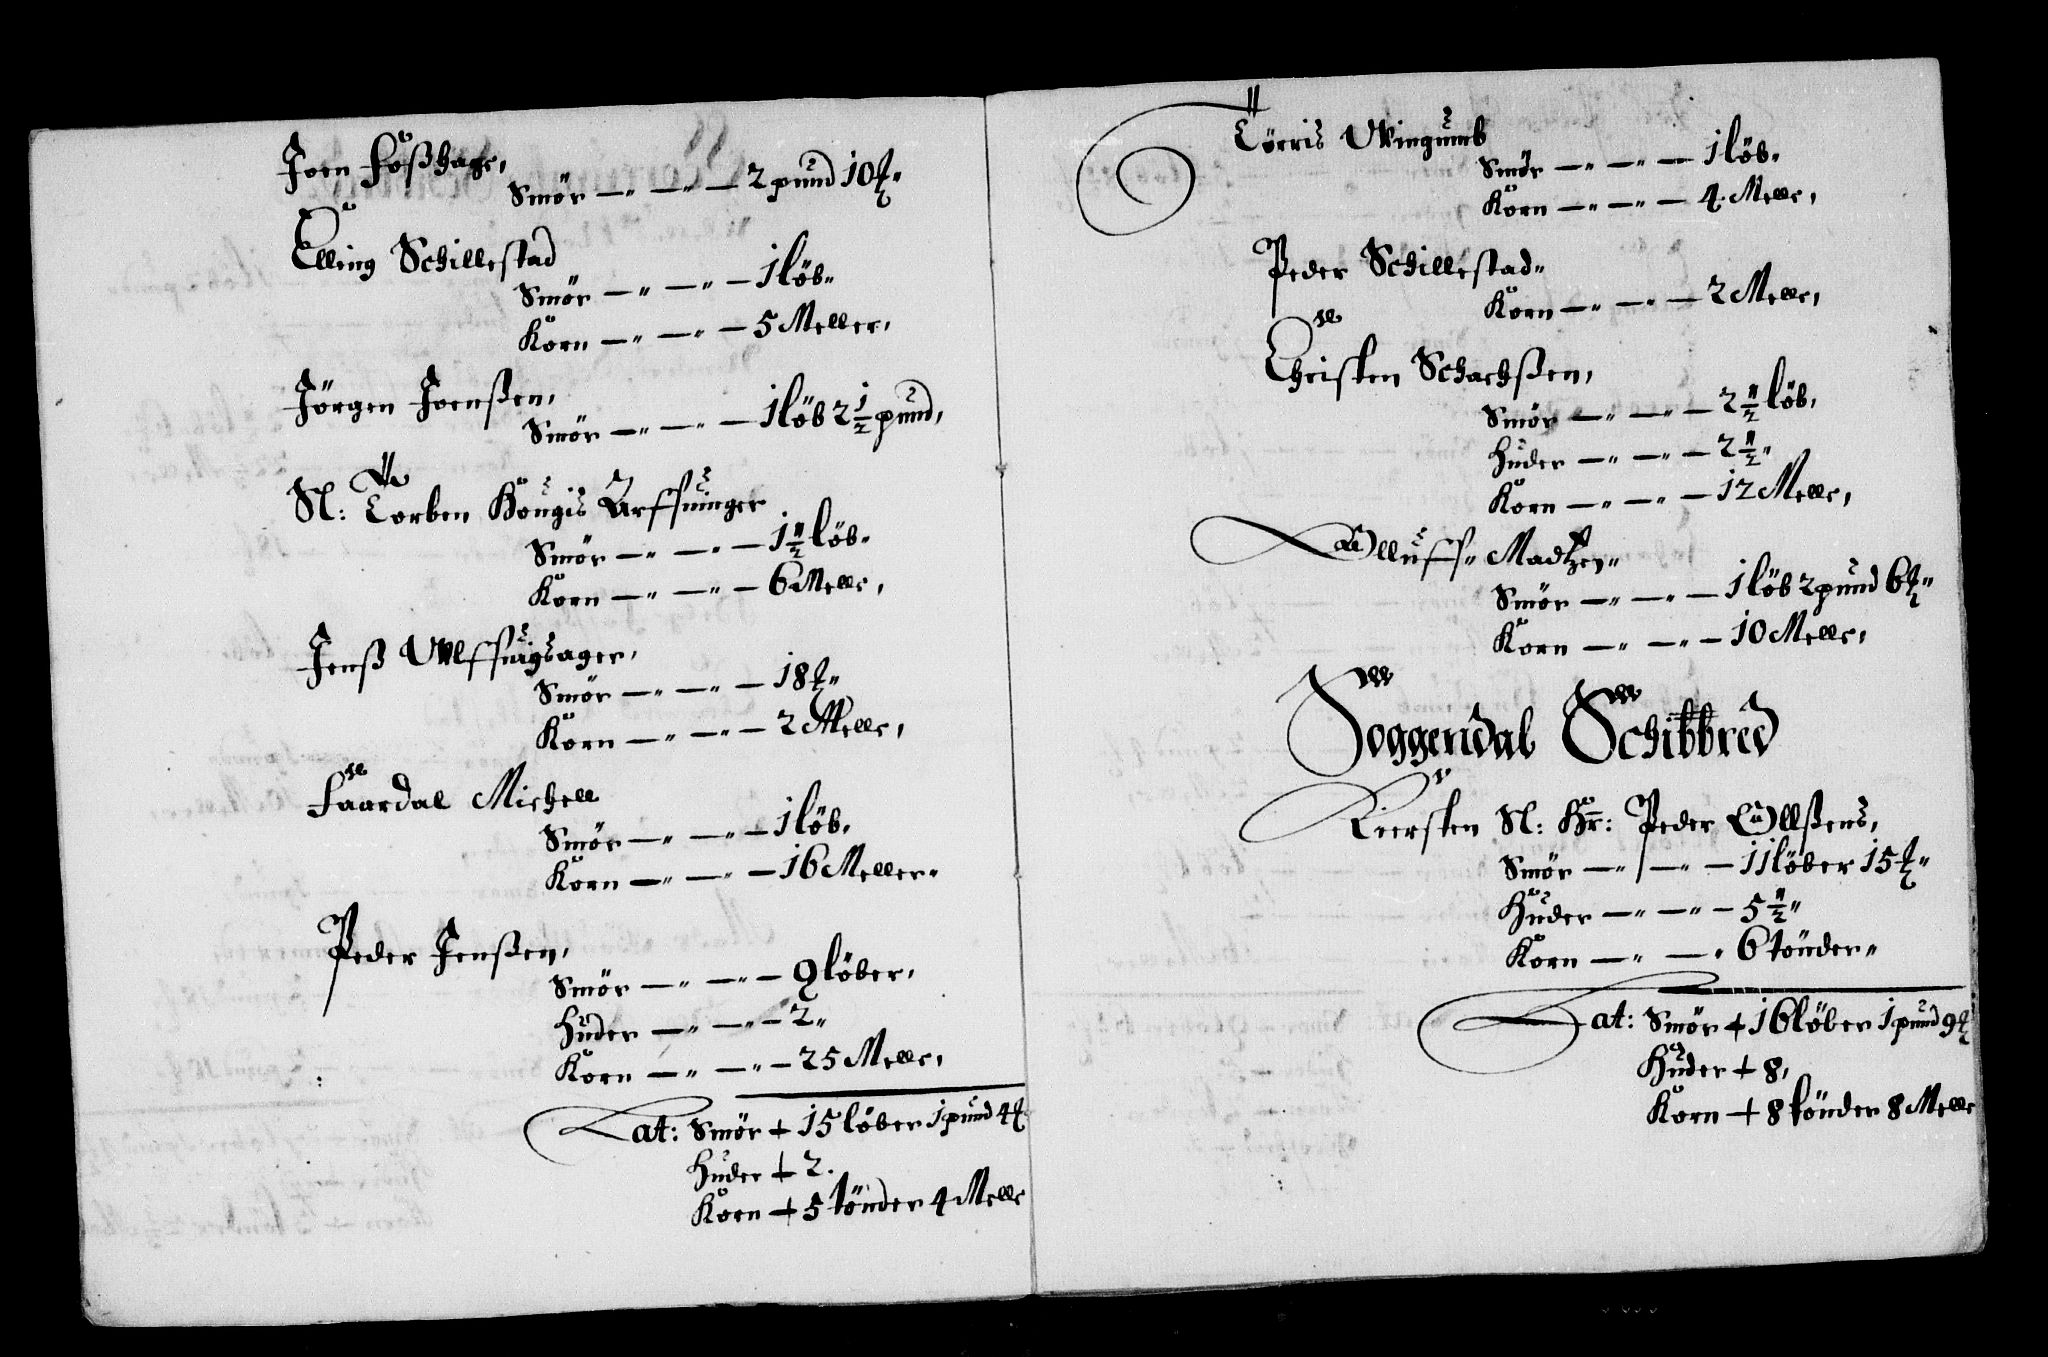 Joen Foßhage,
Smör — „ — „ — 2 pund 10 ℔„
Elling Schillestad
Smör — „ — „ — 1 löb„
Korn — „ — „ — 5 Meller,
Jörgen Joenßen,
Smör — „ — „ — 1 löb 2 1/2 pund,
Sl: Torben Hougis Arffuinger
Smör — „ — „ — 1 1/2 löb„
Korn — „ — „ — 6 Melle,
Jenß Ulffsager,
Smör — „ — „ — 18 ℔„
Korn — „ — „ — 2 Melle,
Faardal Michell
Smör — „ — „ — 1 löb,
Korn — „ — „ — 16 Meller„
Peder Jenßen,
Smör — „ — „ — 9 löber,
Huder — „ — „ — 2„
Korn — „ — „ — 25 Melle,
Lat: Smör + 15 löber 1 pund 4 ℔
Huder + 2.
Korn + 5 tönder 4 Melle
Törris Wingumb
Smör — „ — „ — 1 löb„
Korn — „ — „ — 4 Melle,
Peder Schillestad„
Korn — „ — „ — 2 Melle,
Christen Schachßen,
Smör — „ — „ — 2 1/2 löb,
Huder — „ — „ — 2 1/2„
Korn — „ — „ — 12 Melle,
Olluff„ Madtzen„
Smör — „ — „ — 1 löb 2 pund 6 ℔„
Korn — „ — „ — 10 Melle,
Soggendal Schibbred
Kiersten Sl: Hr: Peder Ollßens,
Smör — „ — „ — 11 löber 15 ℔„
Huder — „ — „ — 5 1/2„
Korn — „ — „ 6 tönder„
Lat: Smör + 16 löber 1 pund 9 ℔
Huder + 8,
Korn + 8 tönder 8 Melle